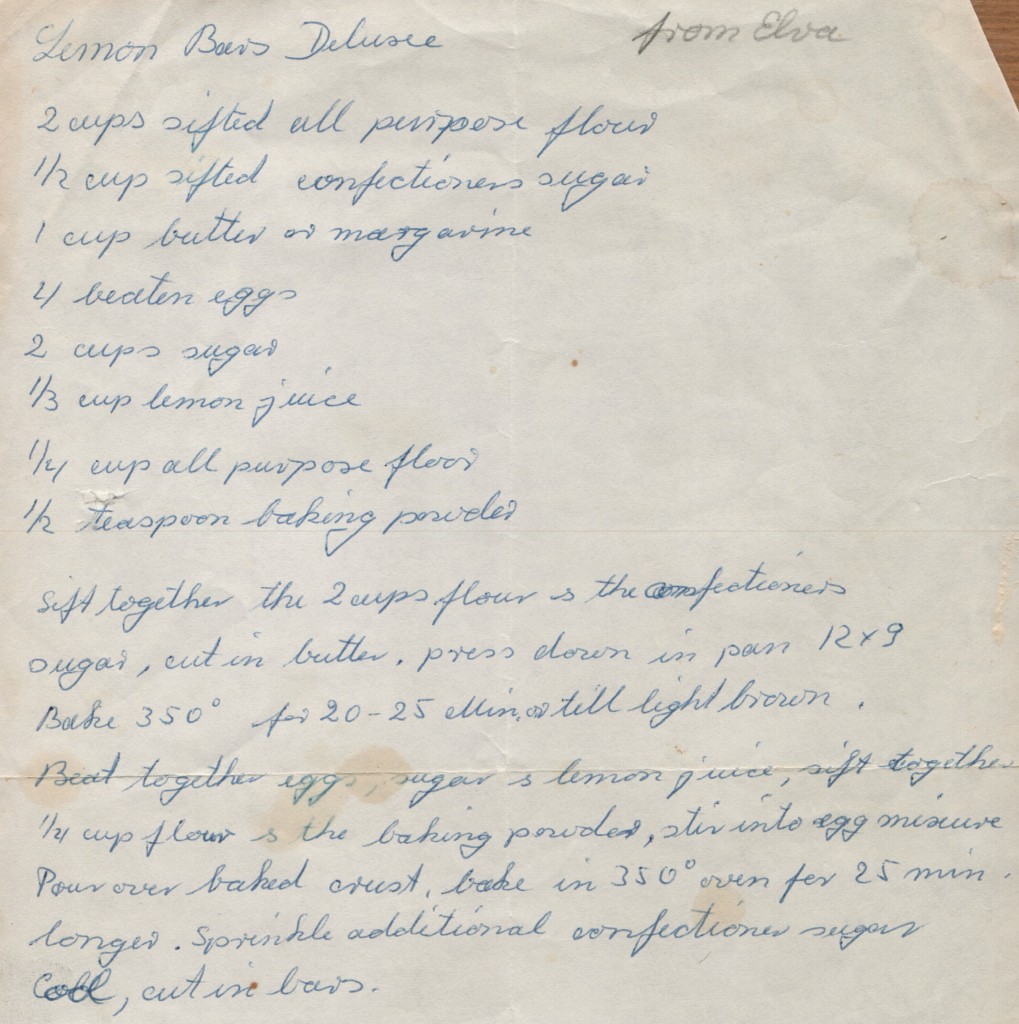 Lemon Bars Deluxe from Elva
2 cups sifted all purpose flour
1/2 cup sifted confectioners sugar
1 cup butter or margarine
4 beaten eggs
2 cups sugar
1/3 cup lemon juice
1/4 cup all purpose floor
1/2 teaspoon baking powder
Sift together the 2 cups flour & the confectioners
sugar, cut in butter. press down in pan 12x9
Bake 350° for 20-25 Min. or till light brown.
Beat together eggs, sugar & lemon juice, sift together
1/4 cup flour & the baking powder, stir into egg mixure
Pour over baked crust, bake in 350° oven for 25 min.
longer. Sprinkle additional confectioner sugar
Cool, cut in bars.